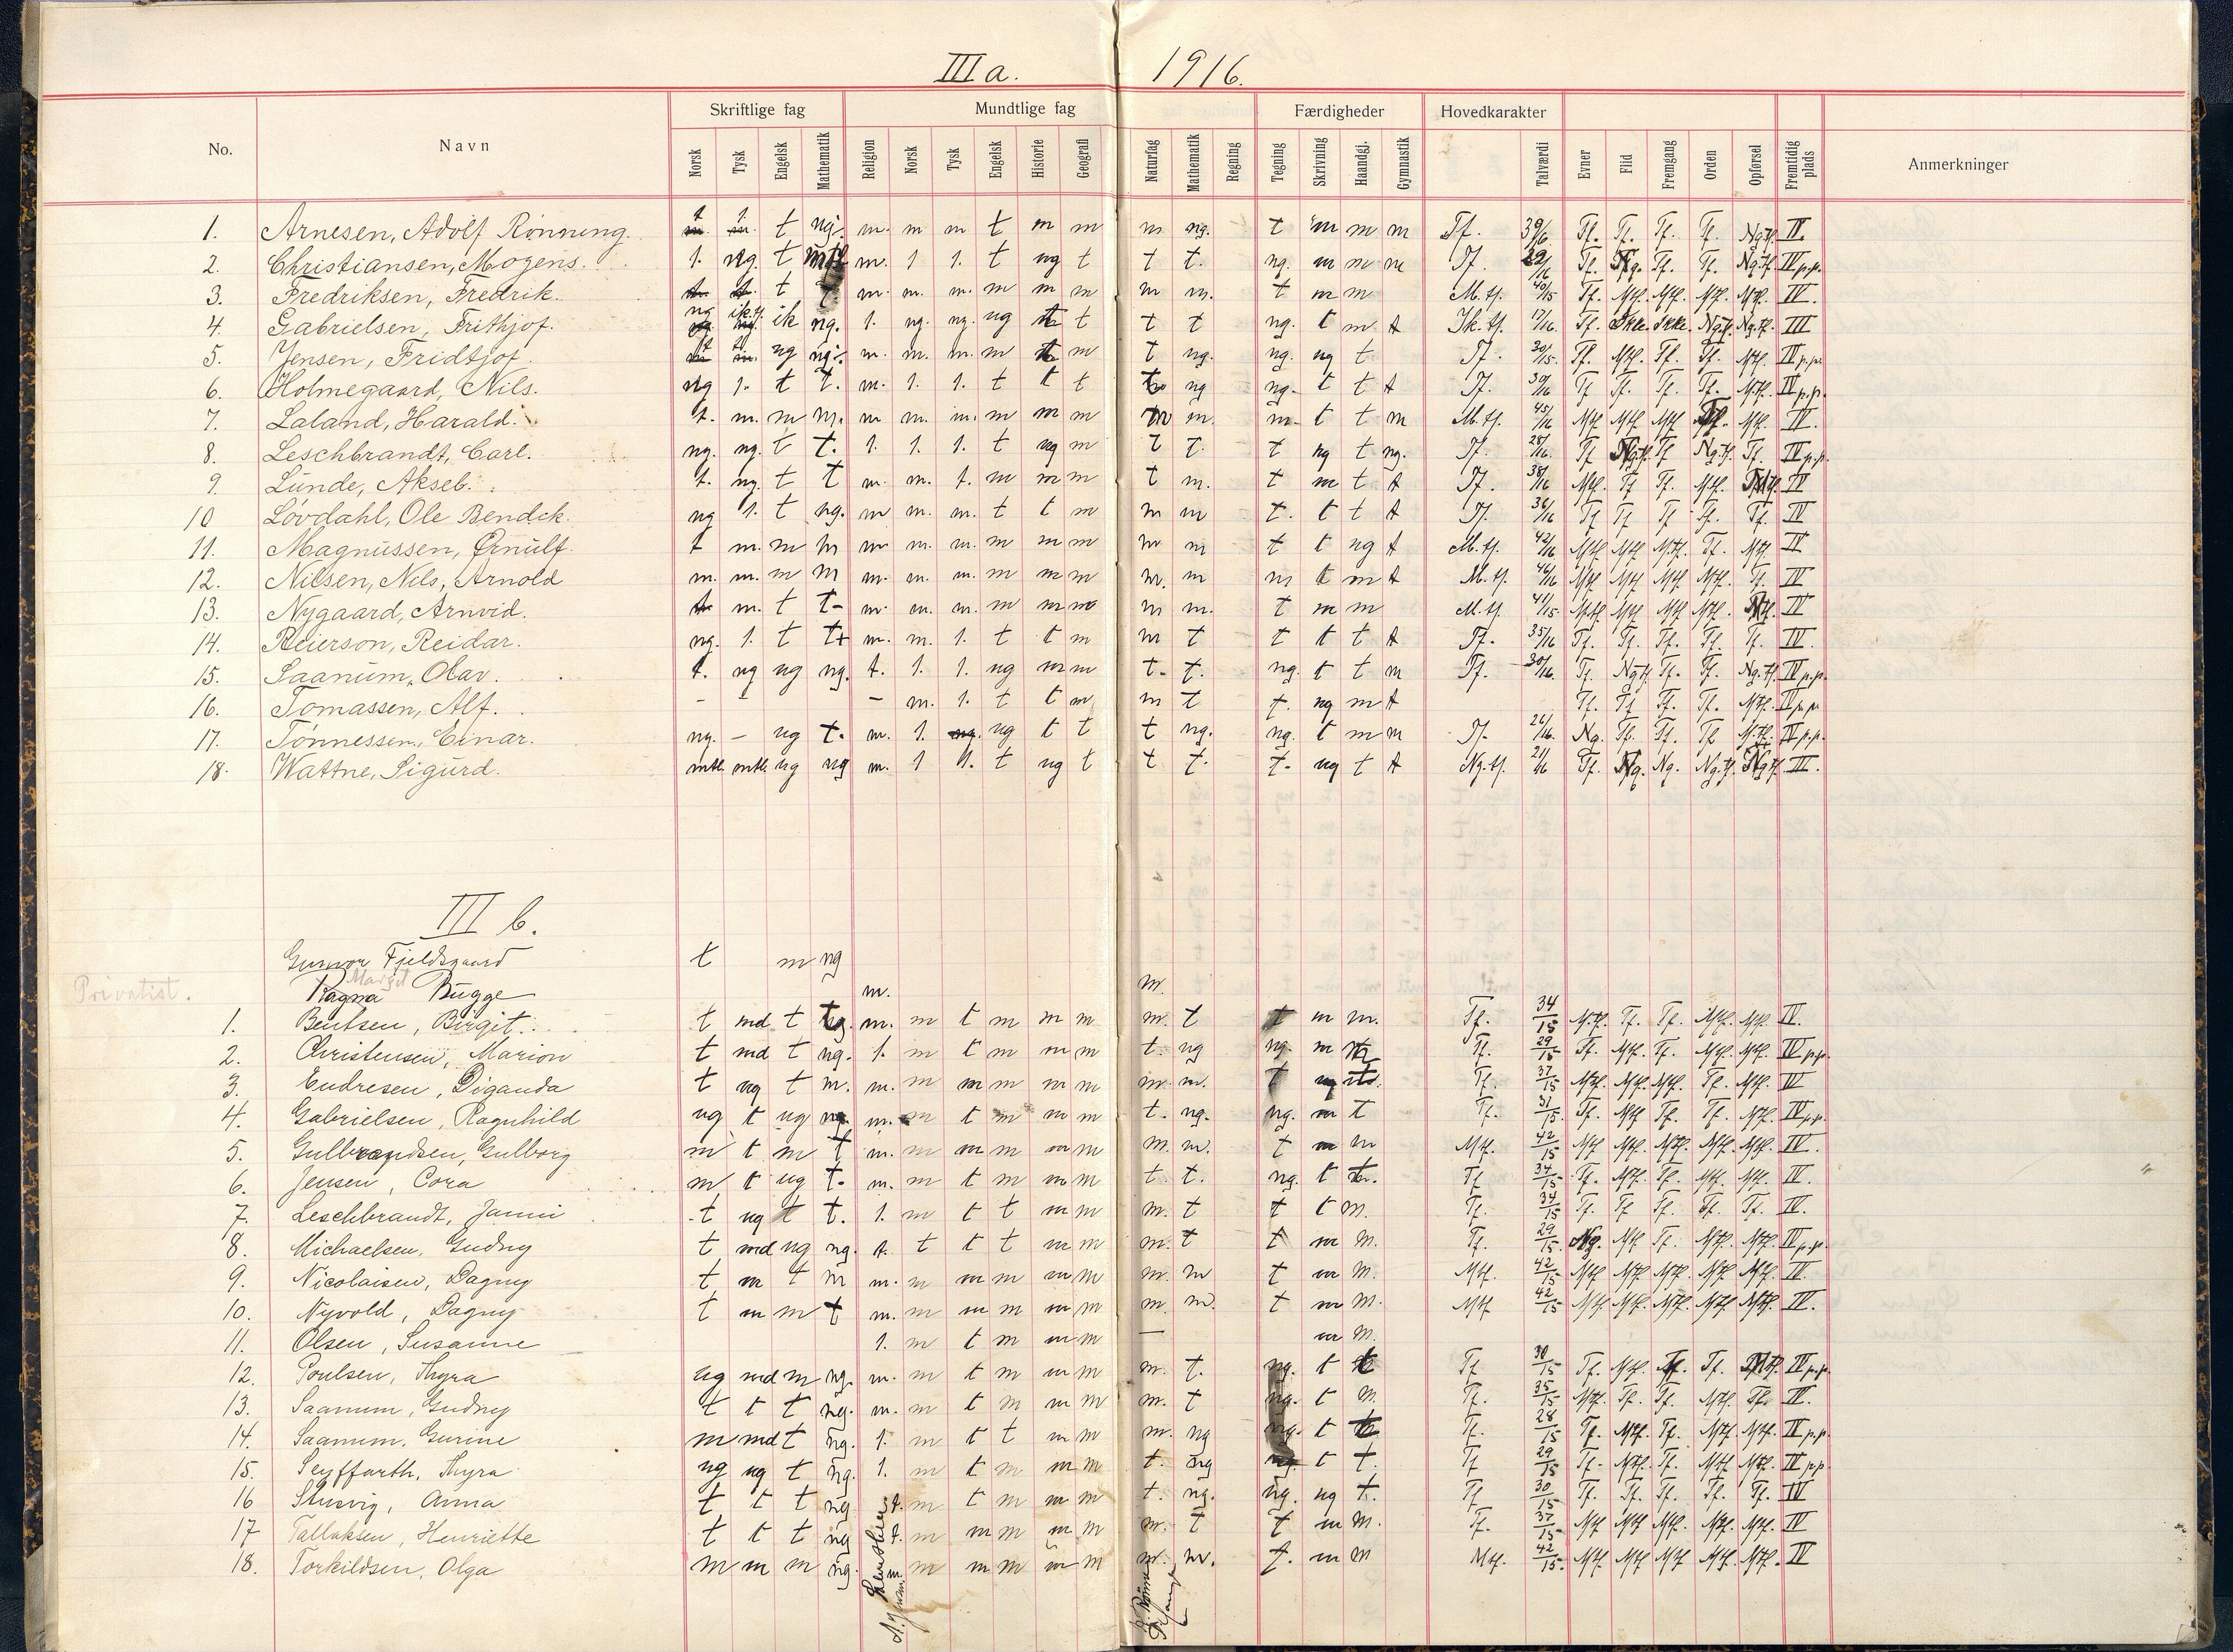 III a. 1916.
Skriftlige fag Mundtlige fag Færdigheder Hovedkarakter
No. Navn Norsk Tysk Engelsk Mathematik Religion Norsk Tysk Engelsk Historie Geografi Naturfag Mathematik Regning Tegning Skrivning Haandgj. Gymnastik Talværdi Evner Flid Fremgang Orden Opførsel Fremtidig plads Anmerkninger
1. Arnesen, Adolf Rönning. t t ng. m. m m t m m m ng. t m m m Tf. 39/16 Tf. Tf. Tf. Tf. Ng.tf. IV.
2. Christiansen, Mogens. 1. ng. t m. 1 1. t ng t t t. ng. m m m Tf. 29/16 Tf. Tf. Tf. Ng.tf. IV p.p.
3. Fredriksen, Fredrik. t m. m. m. m m m m m. t m m M.tf. 40/15 Tf. Mtf. Mtf. Mtf. Mtf. IV.
4. Gabrielsen, Frithjof. ng ik ng. 1. ng. ng. ng t t t ng. t m t Ik.tf. 17/16. Tf. Ikke. Ikke. Ng.tf. Ng.tf. III
5. Jensen, Fridtjof. t t ng ng. m. m. m. m m t ng. ng. ng t Tf. 30/15. Tf. Mtf. Tf. Tf. Mtf. IV p.p.
6. Holmegaard, Nils. ng 1. t t. m. 1. 1. t t t ng ng. t t t Tf. 30/16 Tf Tf. Tf. Tf. M.tf. IV p.p.
7. Laland, Harald. t. m. m m. m m. m. m m m m. m. t t m M.tf. 45/16 Mtf Mtf Mtf Mtf. IV.
8. Leschbrandt, Carl. ng. ng. t t. 1. 1. 1. t ng m t t. t ng t ng. Tf. 28/16. Tf Ng.tf. Tf Ng.tf. Tf. IV p.p.
9. Lunde, Aksel. t. ng. t t m. m. 1. m m m t m. t m t t Tf. 38/16 Mtf. Tf Tf. Mtf. IV
10 Lövdahl, Ole Bendik. ng 1. t ng. m m. m. t t m m m t. t t t Tf. 36/16 Tf Tf Tf Tf. Tf. IV
11. Magnussen, Ørnulf. t m. m m m m. m. m m m m m t t ng t M.tf. 42/16 Mtf. Mtf M.tf. Tf. Mtf. IV
12. Nilsen, Nils, Arnold m. m. m m m. m. m. m m m m. m m t m t M.tf. 46/16 Mtf Mtf Mtf Mtf. Tf. IV
13. Nygaard, Arnvid. m. t t- m. m. m. m m m m m. t m m M.tf. 41/15. Mtf. Mtf Mtf Mtf. IV
14. Reierson, Reidar. ng. 1. t t+ m. m. 1. t t m m t t t t t Tf. 35/16 Tf. Tf. Tf. Tf. Tf. IV.
15. Saanum, Olav. t. ng ng ng. t. 1. 1. ng m m t. t. ng. t t m Tf. 30/16. Tf. Ng.tf Tf. Tf. Ng.tf. IV p.p.
16. Tomassen, Alf. - - - m. 1. t t m m t t. ng m t Tf. Tf Tf. Tf. Mtf. IV p.p.
17. Tönnessen, Einar. ng. - ng t. m. 1. ng. ng t t t ng. ng. t m m Tf. 26/16. Ng. Tf. Tf. Tf M.tf. IV p.p.
18. Wattne, Sigurd. mtl. mtl. ng ng m. 1 1. t ng t t t. t. ng t t Ng.tf. 21/16 Tf. Ng. Ng. Ng.tf. Ng.tf. III.
III b.
Gunvor Fjeldsgaard t m ng
Privatist. Ragna Margit Bugge m. m.
1. Bentsen, Birgit. t md t m. m t m m m m. t m m. Tf. 34/15 M.tf. Tf. Tf. Mtf. Mtf. IV.
2. Christensen, Marion t md t ng. 1. m t m m m t. ng ng. m Tf. 29/15 Tf. Mtf. Tf. Mtf. Mtf. IV p.p.
3. Endresen, Diganda t ng t m. m. m m m m m m. m. t Tf. 37/15 Mtf. Mtf. Mtf. Tf. Mtf. IV
4. Gabrielsen, Ragnhild ng t ng ng. m. m t m m m t. ng. ng. m t Tf. 31/15. Tf. Mtf Tf. Tf. Mtf. IV p.p.
5. Gulbrandsen, Gulborg m t m t m. m m m m m m. m. t m m Mtf. 42/15 Mtf Mtf. Mtf. Mtf. Mtf. IV.
6. Jensen, Cora m t ng t. m. m t m m m t t. ng. t Tf 34/15 Tf. Mtf. Tf. Mtf. Mtf. IV.
7. Leschbrandt, Janni t ng t t. 1. m t t m m m. t t t m. Tf. 34/15 Tf. Tf Tf. Tf. Tf. IV.
8. Michaelsen, Gudny t md ng ng. t. t t t m m m. t t m m. Tf. 29/15. Ng. Mtf Tf. Mtf. Mtf. IV p.p.
9. Nicolaisen, Dagny t m t m m. m m m m m m. m t m m. Mtf. 42/15 Mtf Mtf. Mtf. Mtf Mtf. IV.
10. Nyvold, Dagny t m m t m. m m m m m m. m. t m m. Mtf 42/15 Mtf. Mtf. Mtf. Mtf. Mtf. IV.
11. Olsen, Susanne 1. m t m m m — m m.
12. Poulsen, Thyra ng md m ng. m. m t m m m m. t. ng. t Tf 30/15 Tf. Mtf. Tf. Tf. IV p.p.
13. Saanum, Gudny t t t ng. m. m t m m m m. t ng. t m. Tf. 35/15 Mtf. Tf. Tf. Mtf. Tf. IV.
14. Saanum, Gurine m md t ng. 1. m t t m m m. ng ng. t Tf. 28/15 Tf. Mtf. Tf. Mtf. Mtf. IV p.p.
15. Seyffarth, Thyra ng ng t ng. 1. m t m m m t. ng t t. Tf 29/15 Tf. Mtf. Tf. Mtf. Mtf. IV p.p.
16 Stusvig, Anna t t t ng t. m t m m m t. ng. ng. ng t. Tf 30/15 Tf. Tf. Tf. Tf. Tf. IV
17 Tallaksen, Henriette t t t ng t. m m m m m m. t t m m. Tf. 37/15 Mtf Mtf Mtf. Mtf. Mtf. IV
18. Torkildsen, Olga m m m ng. m. m m m m m m. m. t. m m Mtf. 42/15. Mtf. Mtf. Mtf Mtf. Mtf. IV